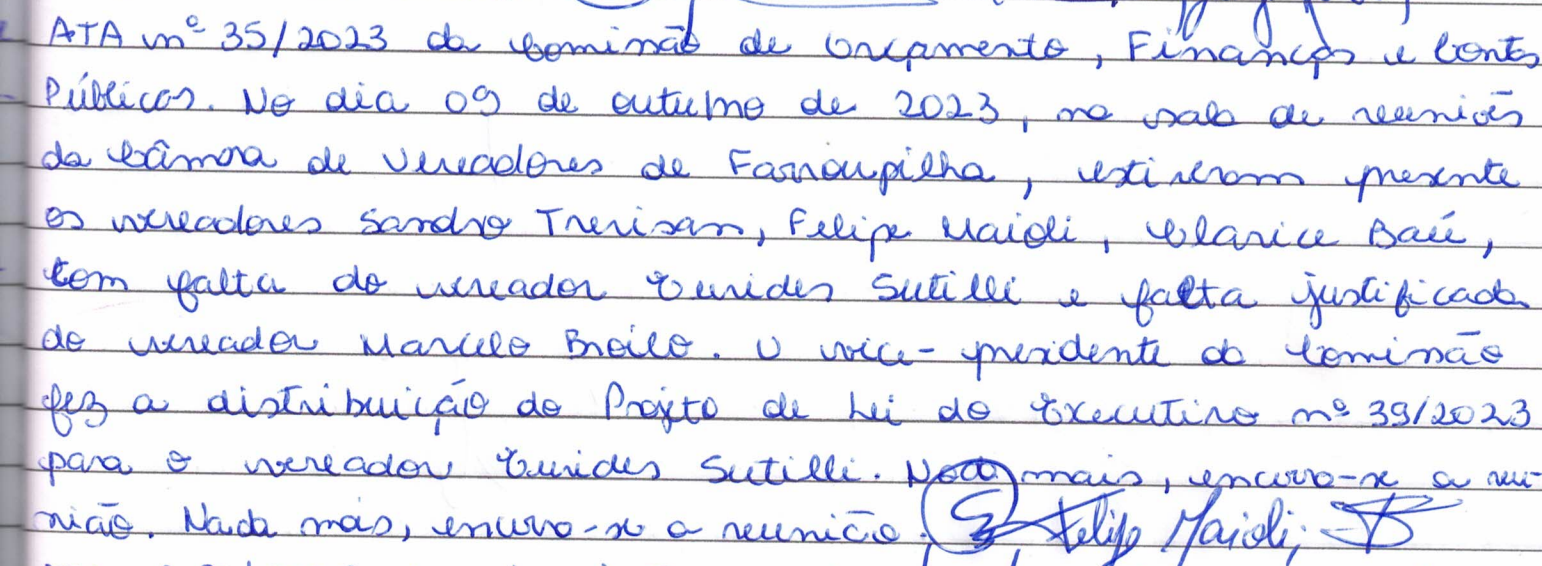 ATA nº 35/2023 da Comissão de Orçamento, Finanças e Contas
Públicas. No dia 09 de outubro de 2023, na sala de reuniões
da Câmara de Vereadores de Farroupilha, estiveram presente
os vereadores Sandro Trevisan, Felipe Maioli, Clarice Baú,
com falta do vereador Eurides Sutilli e falta justificada
do vereador Marcelo Broilo. O vice-presidente da Comissão
fez a distribuição do Projeto de Lei do Executivo nº 39/2023
para o vereador Eurides Sutilli. Nada mais, encerro-se a reu-
nião. Nada mais, encerro-se a reunião.   Felipe Maioli;